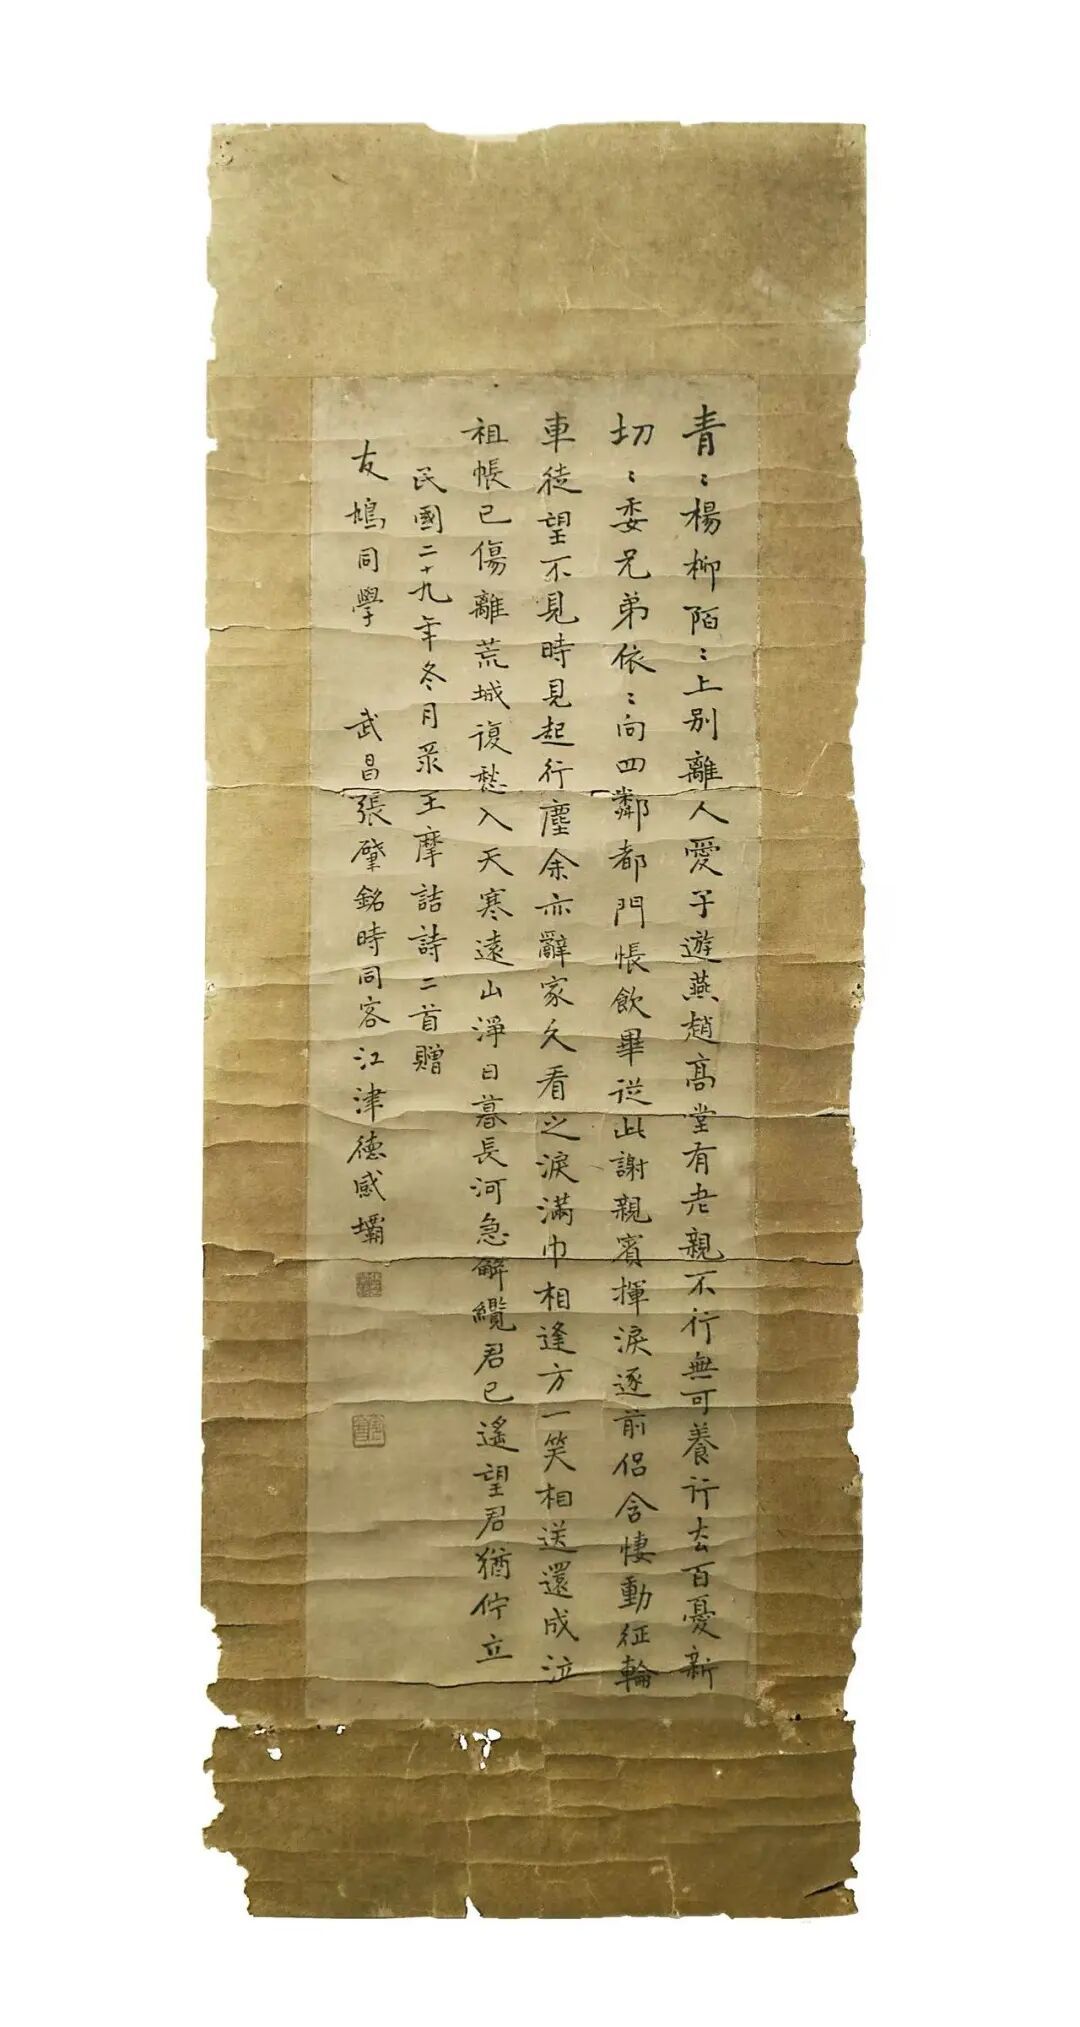 青〻楊柳陌〻上別離人愛子遊燕趙高堂有老親不行無可養行去百憂新
切〻委兄弟依〻向四鄰都門帳飲畢从此謝親賓揮淚逐前侶含悽動征輪
車徒望不見時見起行塵余亦辭家久看之淚滿巾相逢方一笑相送還成泣
祖帳已傷離荒城復愁入天寒遠山淨日暮長河急解纜君已遙望君猶佇立
民國二十九年冬月录王摩詰詩二首贈
友鳩同學 武昌張肇銘時同客江津德感壩